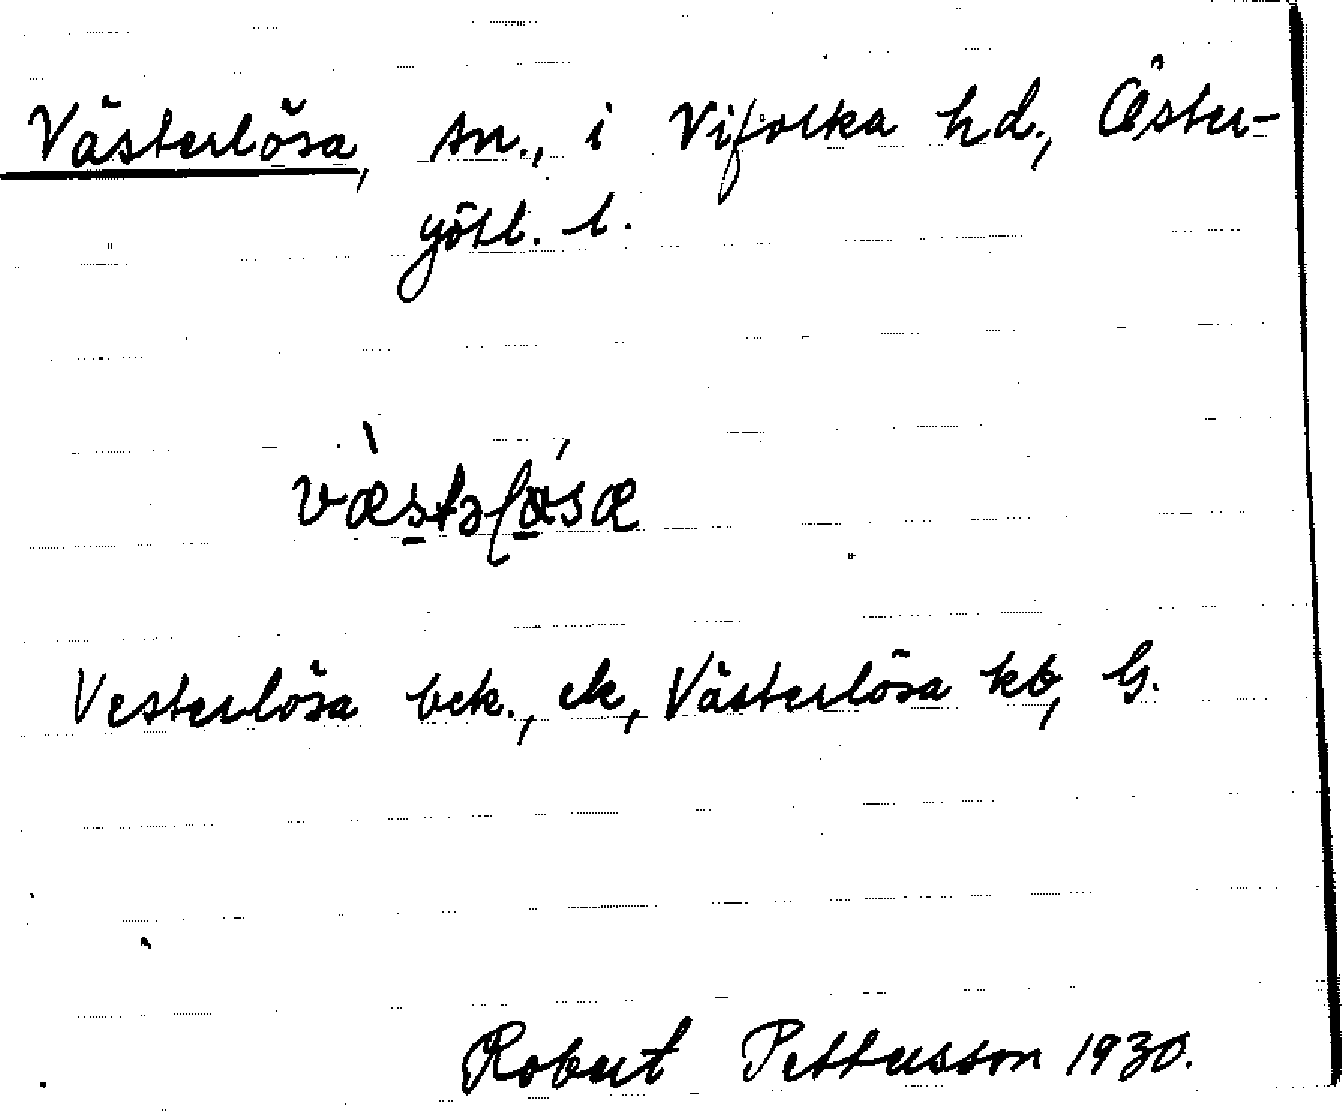 Västerlösa, sn., i Vifolka hd., Öster-
götl. l.
Vesterlösa bek., ek, Västerlösa kb, G.
Robert Pettersson 1930.